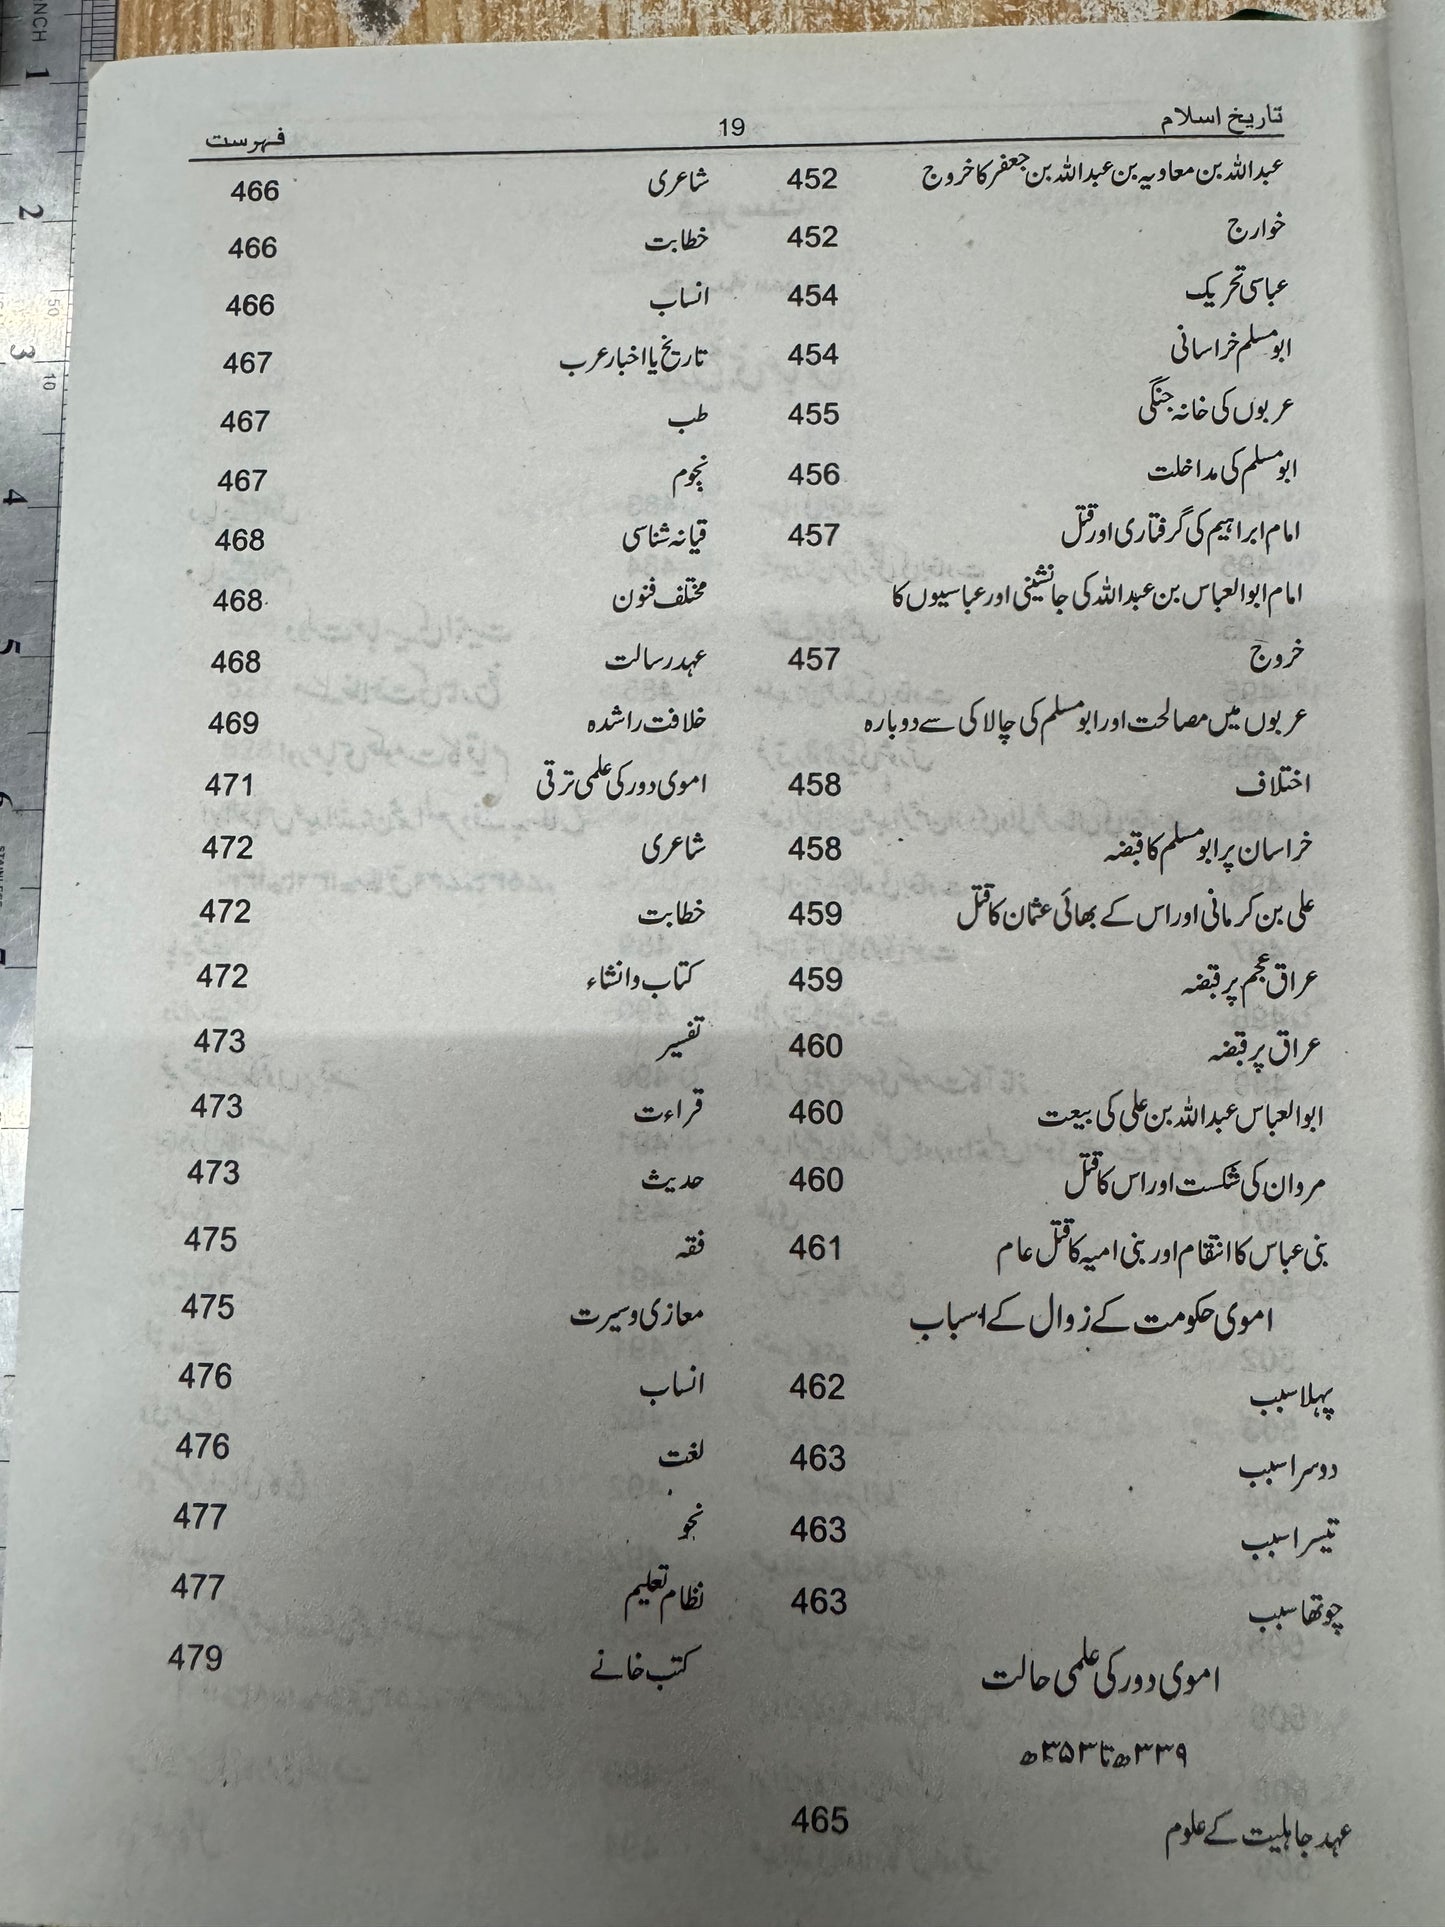 تاریخ اسلام 19 فہرست
عبداللہ بن معاویہ بن عبداللہ بن جعفر کا خروج 452
خوارج 452
عباسی تحریک 454
ابومسلم خراسانی 454
عربوں کی خانہ جنگی 455
ابومسلم کی مداخلت 456
امام ابراہیم کی گرفتاری اور قتل 457
امام ابوالعباس بن عبداللہ کی جانشینی اور عباسیوں کا
خروج 457
عربوں میں مصالحت اور ابومسلم کی چالاکی سے دوبارہ
اختلاف 458
خراسان پر ابومسلم کا قبضہ 458
علی بن کرمانی اور اس کے بھائی عثمان کا قتل 459
عراق عجم پر قبضہ 459
عراق پر قبضہ 460
ابوالعباس عبداللہ بن علی کی بیعت 460
مروان کی شکست اور اس کا قتل 460
بنی عباس کا انتقام اور بنی امیہ کا قتل عام 461
اموی حکومت کے زوال کے اسباب
پہلا سبب 462
دوسرا سبب 463
تیسرا سبب 463
چوتھا سبب 463
اموی دور کی علمی حالت
۳۳۹ھ تا ۳۵۳ھ
عہد جاہلیت کے علوم 465
شاعری 466
خطابت 466
انساب 466
تاریخ یا اخبار عرب 467
طب 467
نجوم 467
قیانہ شناسی 468
مختلف فنون 468
عہد رسالت 468
خلافت راشدہ 469
اموی دور کی علمی ترقی 471
شاعری 472
خطابت 472
کتاب و انشاء 472
تفسیر 473
قراءت 473
حدیث 473
فقہ 475
معازی و سیرت 475
انساب 476
لغت 476
نحو 477
نظام تعلیم 477
کتب خانے 479
INCH
1
2
3
4
5
6
7
50
10